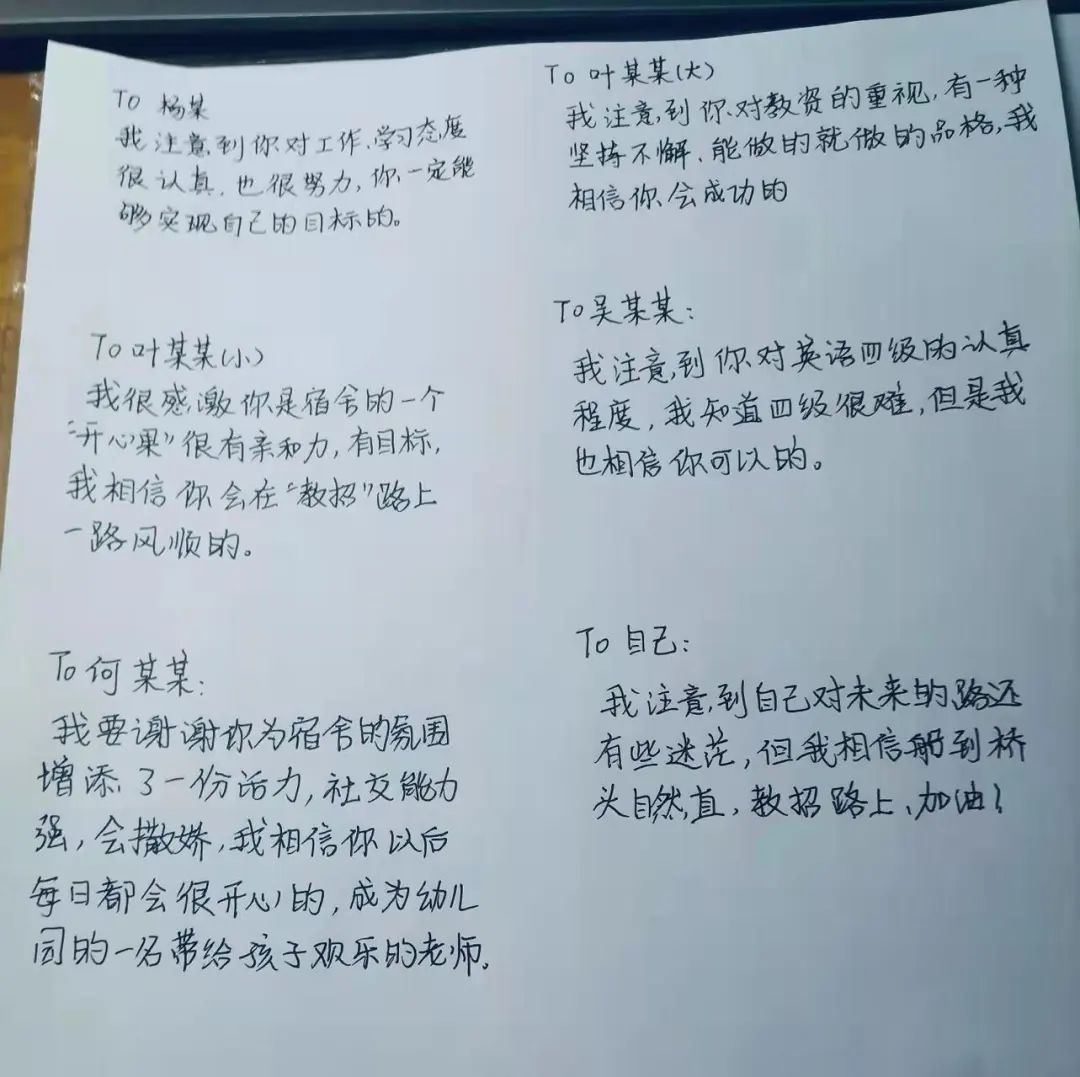 To 杨某
我注意到你对工作、学习态度
很认真，也很努力，你一定能
够实现自己的目标的。
To 叶某某(大)
我注意到你对教资的重视，有一种
坚持不懈、能做的就做的品格，我
相信你会成功的
To 叶某某(小)
我很感激你是宿舍的一个
“开心果”很有亲和力，有目标，
我相信你会在“教招”路上
一路风顺的。
To 吴某某：
我注意到你对英语四级的认真
程度，我知道四级很难，但是我
也相信你可以的。
To 何某某：
我要谢谢你为宿舍的氛围
增添了一份活力，社交能力
强，会撒娇，我相信你以后
每日都会很开心的，成为幼儿
园的一名带给孩子欢乐的老师。
To 自己：
我注意到自己对未来的路还
有些迷茫，但我相信船到桥
头自然直，教招路上、加油！